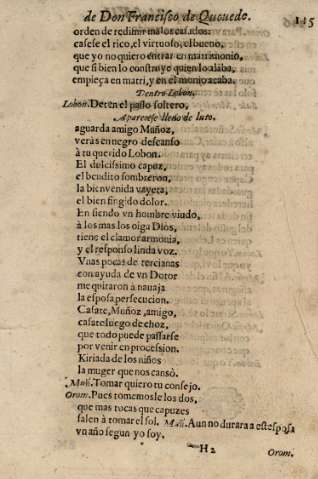 de Don Francisco de Queuedo. 115
orden de redimir malos casados:
casese el rico, el virtuoso, el bueno,
que yo no quiero entrar en matrimonio,
que si bien lo construye quien lo alaba,
empieça en matri, y en el monio acaba.
Dentro Lobon.
Lobon. Deten el passo soltero,
Aparecese lleno de luto.
aguarda amigo Muñoz,
verás en negro descanso
à tu querido Lobon.
El dulcissimo capuz,
el bendito sombreron,
la bienvenida vayeta,
el bien fingido dolor.
En siendo vn hombre viudo,
à los mas los oiga Dios,
tiene el clamor armonia,
y el responso linda voz.
Vnas pocas de tercianas
con ayuda de vn Dotor
me quitaron à nauaja
la esposa persecucion.
Casate, Muñoz, amigo,
casate luego de choz,
que todo puede passarse
por venir en procession.
Kiriada de los niños
la muger que nos cansò.
Muñ. Tomar quiero tu consejo.
Orom. Pues tomemosle los dos,
que mas tocas que capuzes
salen à tomar el sol. Muñ. Aun no durara a estesposa
vn año segun yo soy.
H2 Orom.